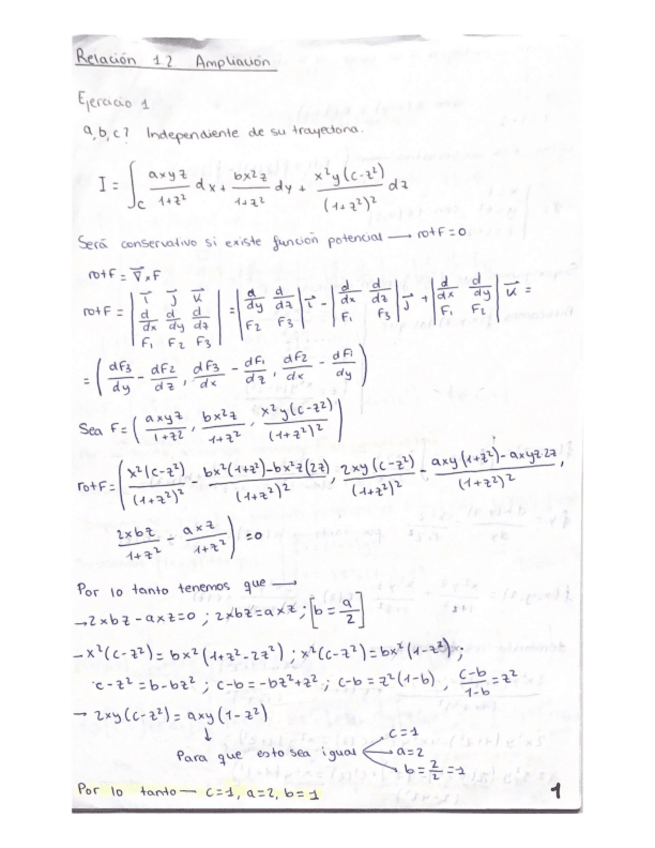 Relación 1.2 Ampliación
Ejercicio 1
a,b,c? Independiente de su trayectoria.
I = ∫_C axyz/(1+z²) dx + bx²z/(1+z²) dy + x²y(c-z²)/(1+z²)² dz
Será conservativo si existe función potencial → rotF=0.
rotF = ∇⃗xF
rotF = | i⃗ j⃗ k⃗ ; d/dx d/dy d/dz ; F₁ F₂ F₃ | = | d/dy d/dz ; F₂ F₃ | i⃗ - | d/dx d/dz ; F₁ F₃ | j⃗ + | d/dx d/dy ; F₁ F₂ | k⃗ =
= ( dF3/dy - dF2/dz , dF3/dx - dF1/dz , dF2/dx - dF1/dy )
Sea F = ( axyz/(1+z²) , bx²z/(1+z²) , x²y(c-z²)/(1+z²)² )
rotF = ( x²(c-z²)/(1+z²)² - (bx²(1+z²)-bx²z(2z))/(1+z²)² , 2xy(c-z²)/(1+z²)² - (axy(1+z²)-axyz2z)/(1+z²)² ,
2xbz/(1+z²) - axz/(1+z²) ) = 0
Por lo tanto tenemos que →
→ 2xbz-axz=0 ; 2xbz=axz ; [b = a/2]
- x²(c-z²) = bx²(1+z²-2z²) ; x²(c-z²) = bx²(1-z²) ;
c-z² = b-bz² ; c-b = -bz²+z² ; c-b = z²(1-b) , (c-b)/(1-b) = z²
→ 2xy(c-z²) = axy(1-z²)
↓
Para que esto sea igual → c=1
→ a=2
→ b = 2/2 = 1
Por lo tanto — c=1, a=2, b=1
1